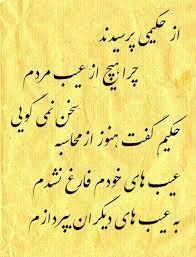 از حکیمی پرسیدند
چرا هیچ از عیب مردم
سخن نمی گویی
حکیم گفت هنوز از محاسبه
عیب های خودم فارغ نشدم
به عیب های دیگران بپردازم